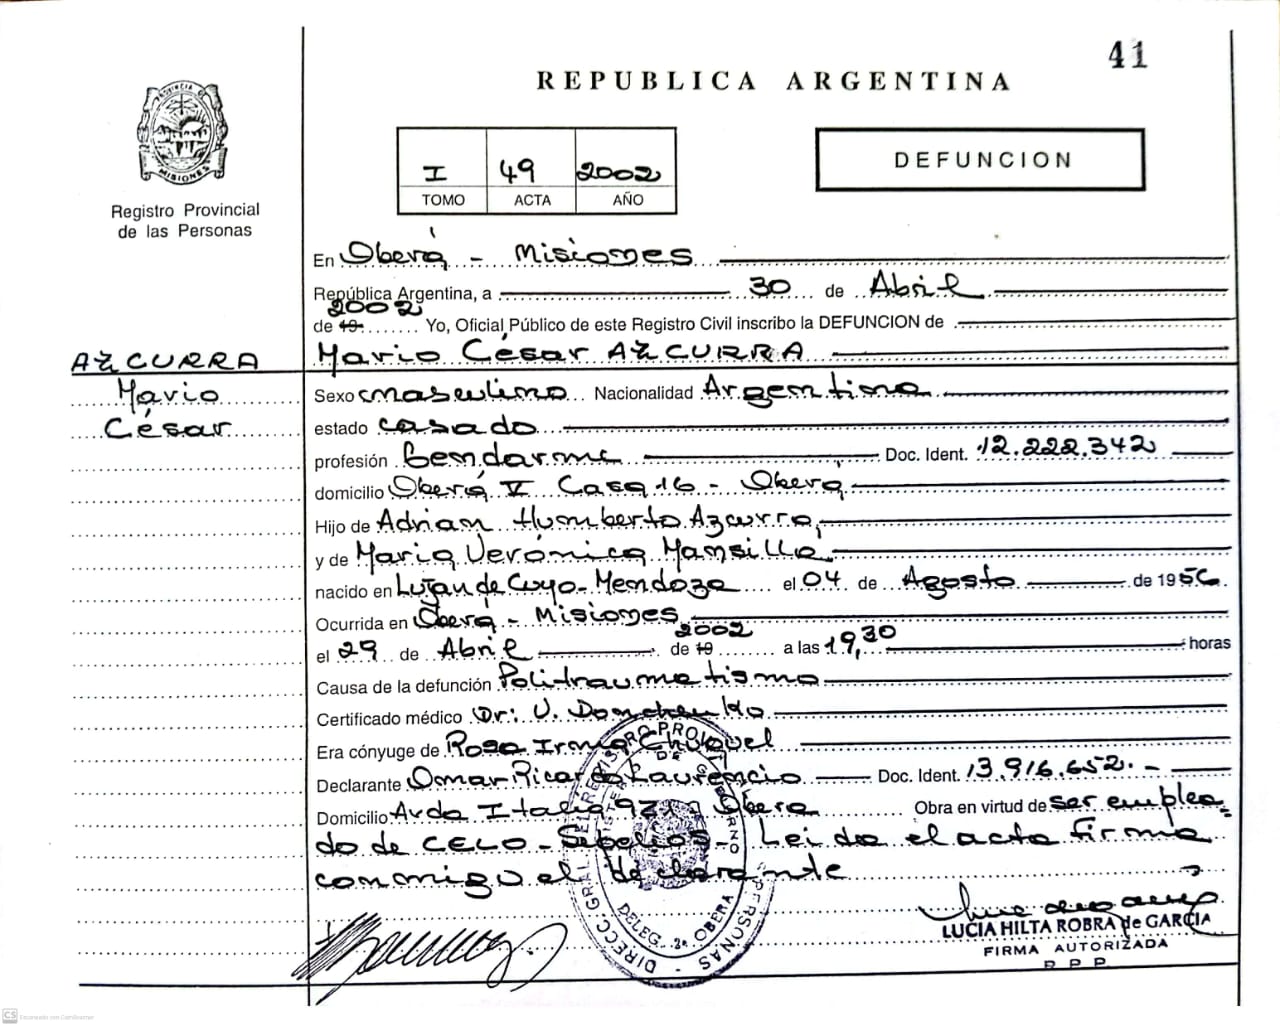 41
REPUBLICA ARGENTINA
PROVINCIA DE
MISIONES
Registro Provincial
de las Personas
I 49 2002
TOMO ACTA AÑO
DEFUNCION
En Oberá - Misiones
República Argentina, a 30 de Abril
2002
de 19 Yo, Oficial Público de este Registro Civil inscribo la DEFUNCION de
AZCURRA Mario César AZCURRA
Mario Sexo masculino Nacionalidad Argentina
César estado casado
profesión Gendarme Doc. Ident. 12.222.342
domicilio Oberá V Casa 16 - Oberá
Hijo de Adrian Humberto Azcurra
y de María Verónica Mansilla
nacido en Luján de Cuyo - Mendoza el 04 de Agosto de 1956
Ocurrida en Oberá - Misiones
2002
el 29 de Abril de 19 a las 19,30 horas
Causa de la defunción Politraumatismo
Certificado médico Dr: V. Donchenko
Era cónyuge de Rosa Irma
Declarante Omar Ricardo Laurencio Doc. Ident. 13.916.652.-
Domicilio Avda Italia Oberá Obra en virtud de ser emplea-
do de CELO - Sepelios - Leida el acta firma
conmigo el declarante
DIRECC. GRAL. DEL REGISTRO PROV. PERSONAS
MINISTERIO DE GOBIERNO
DELEG. 2ª OBERA
LUCIA HILTA ROBRA de GARCIA
FIRMA AUTORIZADA
R.P.P.
CS Escaneado con CamScanner